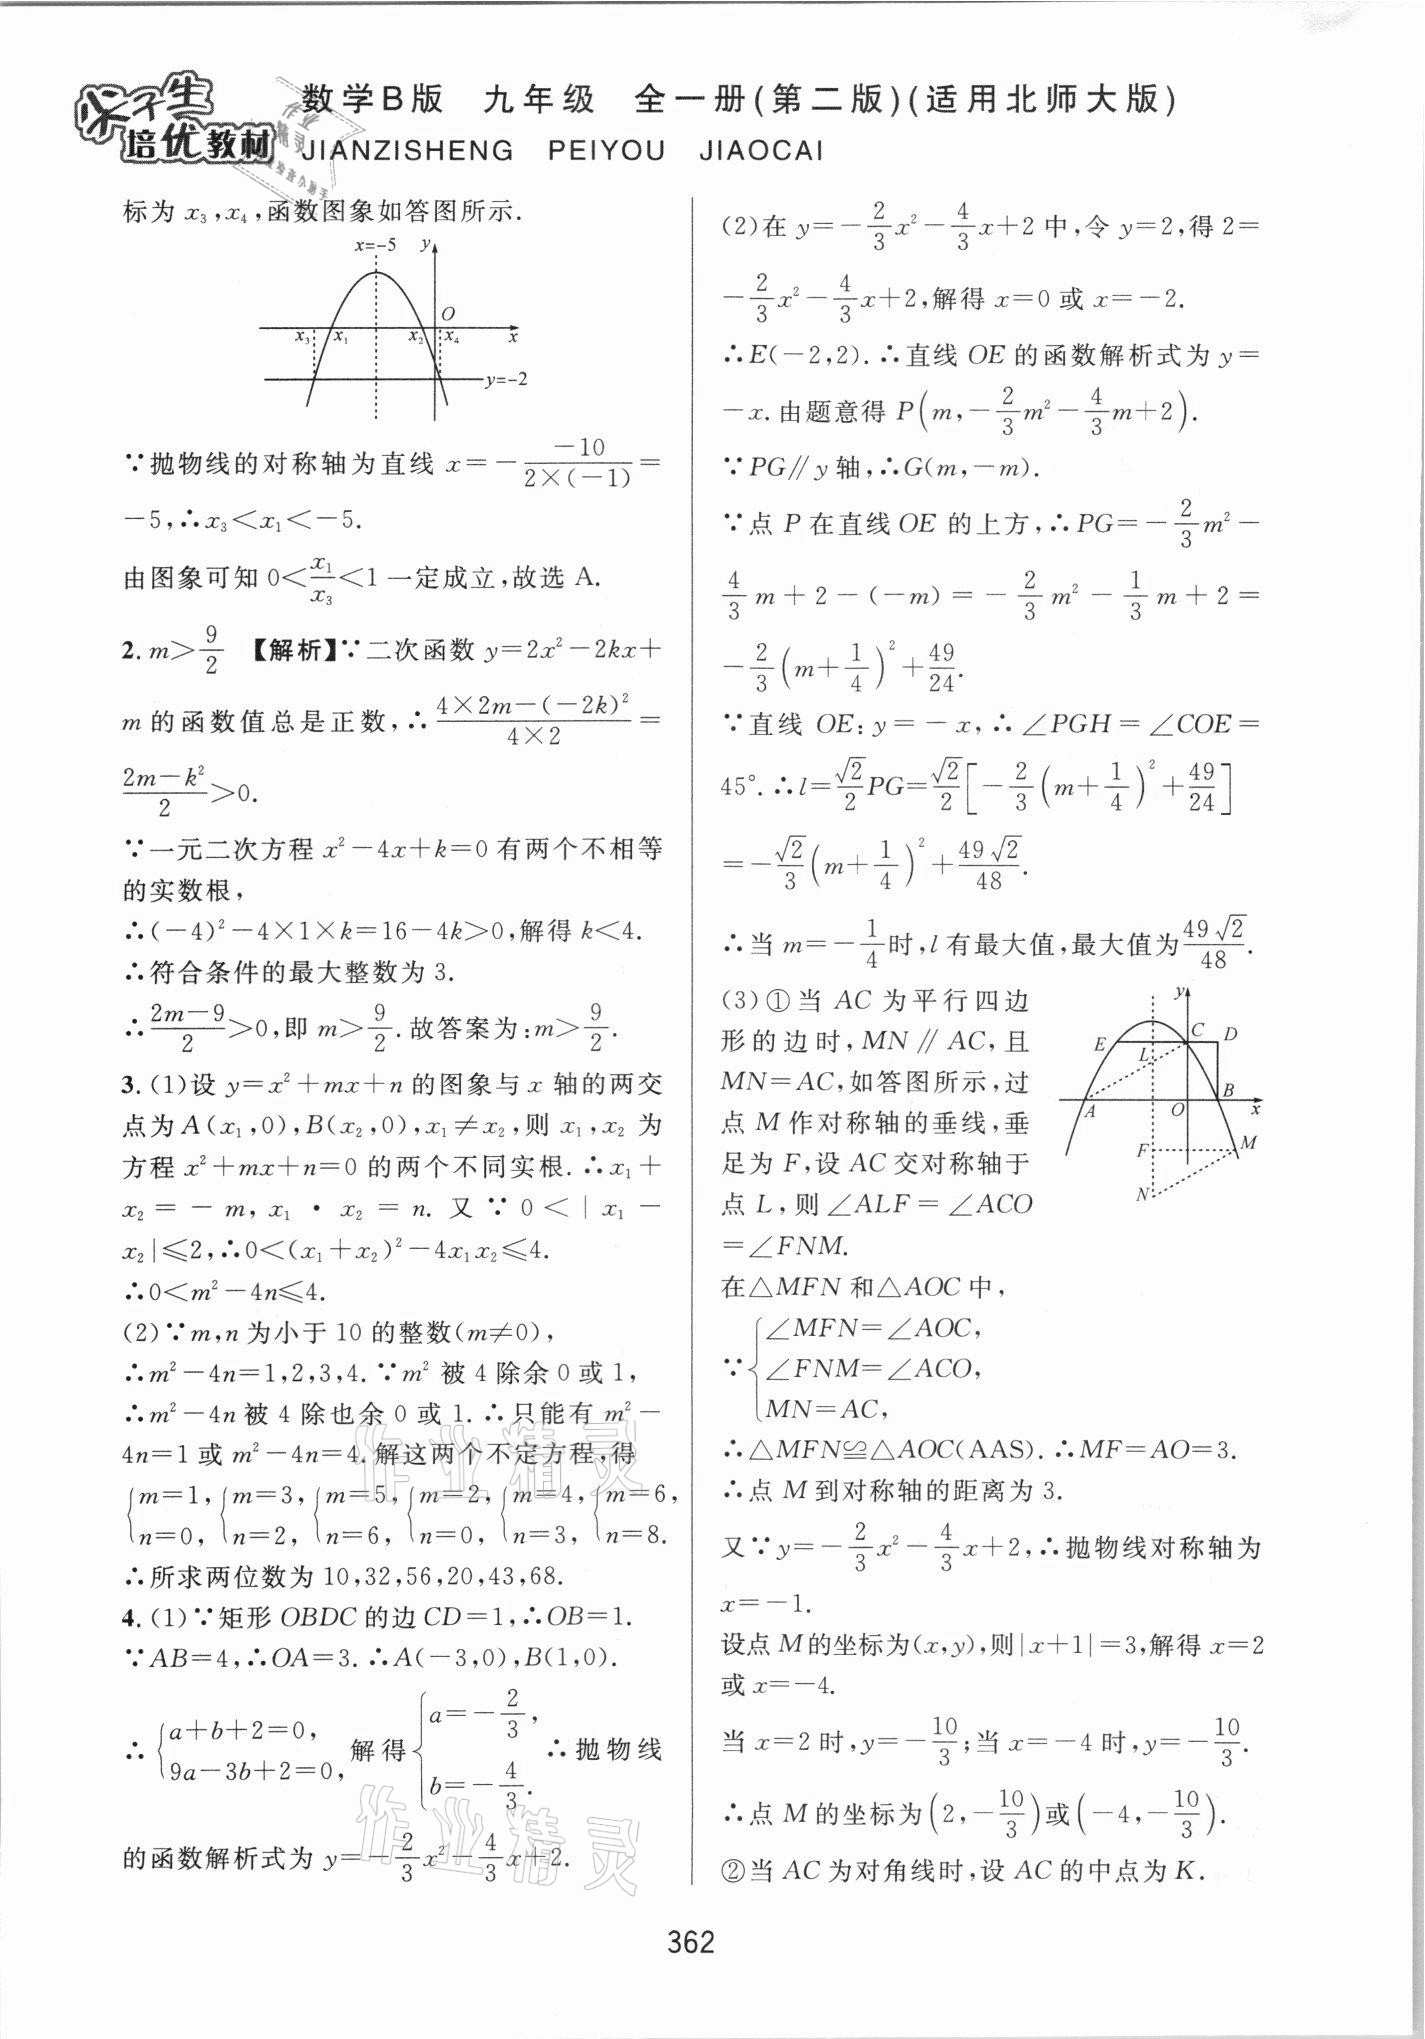 尖子生
培优教材
数学B版 九年级 全一册(第二版)(适用北师大版)
JIANZISHENG PEIYOU JIAOCAI
标为 x₃,x₄,函数图象如答图所示.
x=-5 y
O
x₃ x₁ x₂ x₄ x
y=-2
∵抛物线的对称轴为直线 x=-\frac{-10}{2×(-1)}=
-5,∴x₃<x₁<-5.
由图象可知 0<\frac{x₁}{x₃}<1 一定成立,故选 A.
2. m>\frac{9}{2} 【解析】∵二次函数 y=2x²-2kx+
m 的函数值总是正数,∴\frac{4×2m-(-2k)²}{4×2}=
\frac{2m-k²}{2}>0.
∵一元二次方程 x²-4x+k=0 有两个不相等
的实数根,
∴(-4)²-4×1×k=16-4k>0,解得 k<4.
∴符合条件的最大整数为 3.
∴\frac{2m-9}{2}>0,即 m>\frac{9}{2}.故答案为:m>\frac{9}{2}.
3. (1)设 y=x²+mx+n 的图象与 x 轴的两交
点为 A(x₁,0),B(x₂,0),x₁≠x₂,则 x₁,x₂ 为
方程 x²+mx+n=0 的两个不同实根.∴x₁+
x₂=-m,x₁·x₂=n. 又∵0<|x₁-
x₂|≤2,∴0<(x₁+x₂)²-4x₁x₂≤4.
∴0<m²-4n≤4.
(2)∵m,n 为小于 10 的整数(m≠0),
∴m²-4n=1,2,3,4.∵m² 被 4 除余 0 或 1,
∴m²-4n 被 4 除也余 0 或 1.∴只能有 m²-
4n=1 或 m²-4n=4.解这两个不定方程,得
{m=1, {m=3, {m=5, {m=2, {m=4, {m=6,
n=0, n=2, n=6, n=0, n=3, n=8.
∴所求两位数为 10,32,56,20,43,68.
4. (1)∵矩形 OBDC 的边 CD=1,∴OB=1.
∵AB=4,∴OA=3.∴A(-3,0),B(1,0).
∴{a+b+2=0, 9a-3b+2=0, 解得{a=-\frac{2}{3}, b=-\frac{4}{3}. ∴抛物线
的函数解析式为 y=-\frac{2}{3}x²-\frac{4}{3}x+2.
(2)在 y=-\frac{2}{3}x²-\frac{4}{3}x+2 中,令 y=2,得 2=
-\frac{2}{3}x²-\frac{4}{3}x+2,解得 x=0 或 x=-2.
∴E(-2,2).∴直线 OE 的函数解析式为 y=
-x.由题意得 P(m,-\frac{2}{3}m²-\frac{4}{3}m+2).
∵PG∥y 轴,∴G(m,-m).
∵点 P 在直线 OE 的上方,∴PG=-\frac{2}{3}m²-
\frac{4}{3}m+2-(-m)=-\frac{2}{3}m²-\frac{1}{3}m+2=
-\frac{2}{3}(m+\frac{1}{4})²+\frac{49}{24}.
∵直线 OE:y=-x,∴∠PGH=∠COE=
45°.∴l=\frac{√2}{2}PG=\frac{√2}{2}[-\frac{2}{3}(m+\frac{1}{4})²+\frac{49}{24}]
=-\frac{√2}{3}(m+\frac{1}{4})²+\frac{49√2}{48}.
∴当 m=-\frac{1}{4}时,l 有最大值,最大值为\frac{49√2}{48}.
(3)①当 AC 为平行四边
形的边时,MN∥AC,且
MN=AC,如答图所示,过
点 M 作对称轴的垂线,垂
足为 F,设 AC 交对称轴于
点 L,则∠ALF=∠ACO
=∠FNM.
y
E C D
L
A O B x
F M
N
在△MFN 和△AOC 中,
∵{∠MFN=∠AOC,
∠FNM=∠ACO,
MN=AC,
∴△MFN≌△AOC(AAS).∴MF=AO=3.
∴点 M 到对称轴的距离为 3.
又∵y=-\frac{2}{3}x²-\frac{4}{3}x+2,∴抛物线对称轴为
x=-1.
设点 M 的坐标为(x,y),则|x+1|=3,解得 x=2
或 x=-4.
当 x=2 时,y=-\frac{10}{3};当 x=-4 时,y=-\frac{10}{3}.
∴点 M 的坐标为(2,-\frac{10}{3})或(-4,-\frac{10}{3}).
②当 AC 为对角线时,设 AC 的中点为 K.
作业精灵
作业精灵
362